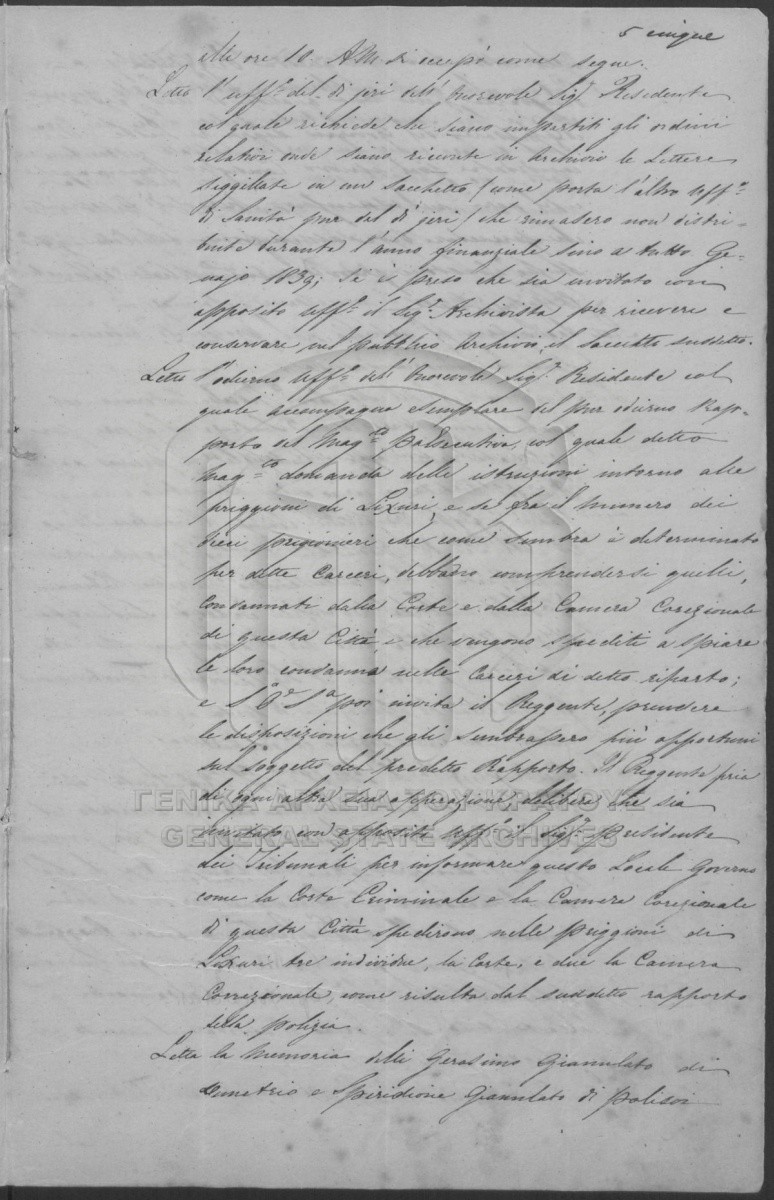 5 cinque
alle ore 10. AM. si occupò come segue.
Letto l'uff.º del dì jeri dell'Onorevole Sig.r Residente
col quale richiede che siano impartiti gli ordini
relativi onde siano ricevute in Archivio le Lettere
siggillate in un Sacchetto (come porta l'altro uff.º
di Sanità pur del dì jeri) che rimasero non distri-
buite durante l'anno finanziale sino a tutto Ge-
najo 1839; Si è preso che sia invitato con
apposito uff.º il Sig.r Archivista per ricevere e
conservare nel pubblico Archivio, il Sacchetto suddetto.
Letto l'odierno uff.º dell'Onorevole Sig.r Residente col
quale accompagna esemplare del pur odierno Rap-
porto del Mag.to P. Esecutivo, col quale detto
Mag.to domanda delle istruzioni intorno alle
priggioni di Lixuri, e se fra il numero dei
dieci prigionieri che come sembra è determinato
per dette Carceri, debbano comprendersi quelli,
Condannati dalla Corte e dalla Camera Corezionale
di questa Città, e che vengono spediti a spiare
le loro condanna nelle Carceri di detto riparto;
e S. S.a poi invita il Reggente, prendere
le disposizioni che gli sembrassero più opportuni
sul soggetto del predetto Rapporto. Il Reggente pria
di ogni altra sua operazione deliberò che sia
invitato con apposito uff.º il Sig.r Presidente
dei Tribunali per informare questo Locale Governo
come la Corte Criminale e la Camera Corezionale
di questa Città spedirono nelle priggioni di
Lixuri tre individui, la Corte, e due la Camera
Correzionale, come risulta dal suddetto rapporto
della polizia.
Letta la Memoria delli Gerasimo Giannulato di
Demetrio e Spiridione Giannulato di
ΓΕΝΙΚΑ ΑΡΧΕΙΑ ΤΟΥ ΚΡΑΤΟΥΣ
GENERAL STATE ARCHIVES